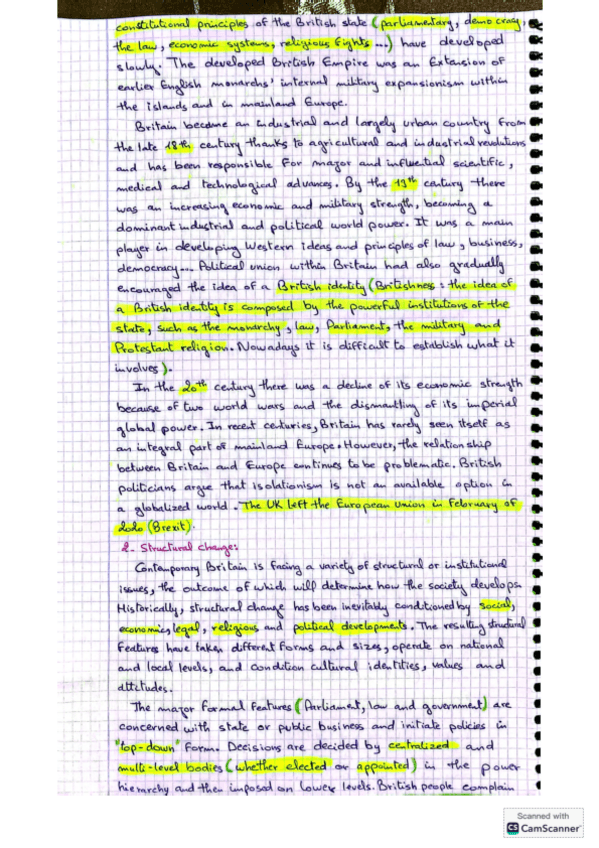 constitutional principles of the British state (parliamentary, democracy,
the law, economic systems, religious fights...) have developed
slowly. The developed British Empire was an Extension of
earlier English monarchs' internal military expansionism within
the islands and in mainland Europe.
Britain became an industrial and largely urban country from
the late 18th century thanks to agricultural and industrial revolutions
and has been responsible for major and influential scientific,
medical and technological advances. By the 19th century there
was an increasing economic and military strength, becoming a
dominant industrial and political world power. It was a main
player in developing Western ideas and principles of law, business,
democracy... Political union within Britain had also gradually
encouraged the idea of a British identity (Britishness: the idea of
a British identity is composed by the powerful institutions of the
state, such as the monarchy, law, Parliament, the military and
Protestant religion. Nowadays it is difficult to establish what it
involves).
In the 20th century there was a decline of its economic strength
because of two world wars and the dismantling of its imperial
global power. In recent centuries, Britain has rarely seen itself as
an integral part of mainland Europe. However, the relationship
between Britain and Europe continues to be problematic. British
politicians argue that isolationism is not an available option in
a globalized world. The UK left the European Union in February of
2020 (Brexit).
2- Structural change:
Contemporary Britain is facing a variety of structural or institutional
issues, the outcome of which will determine how the society develops.
Historically, structural change has been inevitably conditioned by social,
economic, legal, religious and political developments. The resulting structural
features have taken different forms and sizes, operate on national
and local levels, and condition cultural identities, values and
attitudes.
The major formal features (Parliament, law and government) are
concerned with state or public business and initiate policies in
"top-down" form. Decisions are decided by centralized and
multi-level bodies (whether elected or appointed) in the power
hierarchy and then imposed on lower levels. British people complain
Scanned with
CS CamScanner